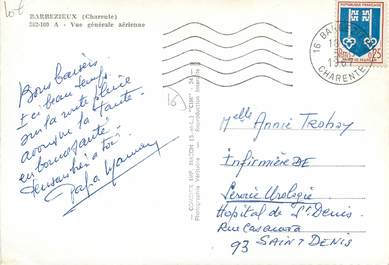 lot
BARBEZIEUX (Charente)
262-100 A - Vue générale aérienne
Bons baisers
Ici beau temps
sur la route pluie
avons que la
en bonne santé
Pensons bien à toi
Papa Maman
COMBIER IMP. MACON (S.-&-L.) "CIM"
Photographie Véritable - Reproduction interdite
REPUBLIQUE FRANÇAISE
0,25
16
19
CHARENTE
Melle Annie Trohay
Infirmière DE
Service Urologie
Hopital de St Denis
Rue Casanova
93 SAINT DENIS